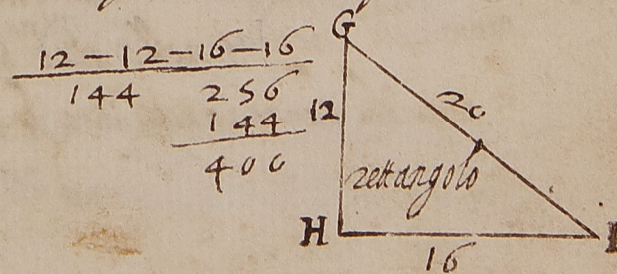 12 – 12 – 16 – 16
144 256
144
400
G
12
20
rettangolo
H
16